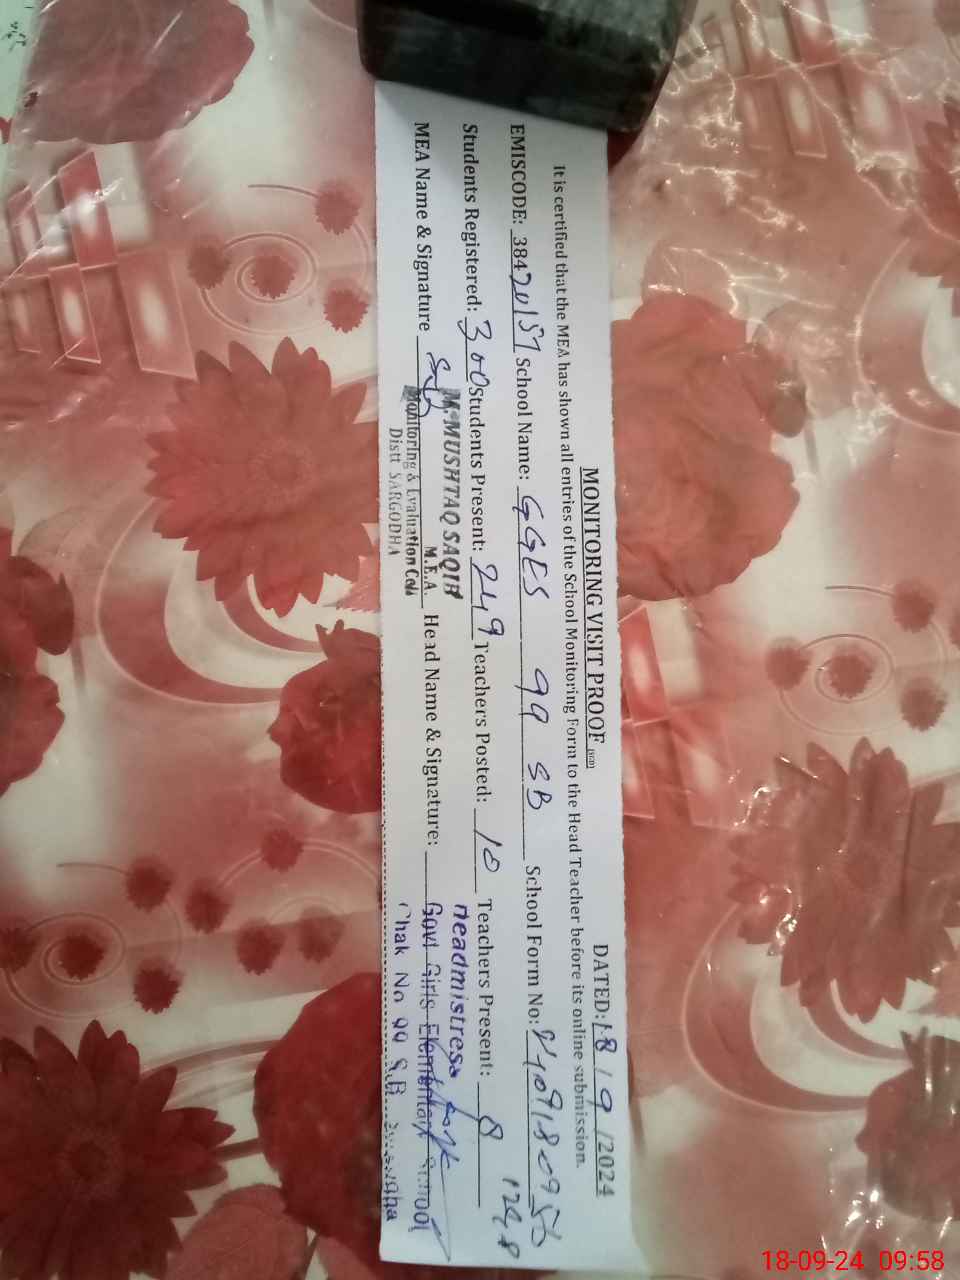 MONITORING VISIT PROOF
DATED: 18 / 9 /2024
It is certified that the MEA has shown all entries of the School Monitoring Form to the Head Teacher before its online submission.
EMISCODE: 384 School Name: GGES 99 SB School Form No:
Students Registered: 300 Students Present: 249 Teachers Posted: 10 Teachers Present: 8
MEA Name & Signature Head Name & Signature:
MUSHTAQ SAQIB
M.E.A.
Monitoring & Evaluation Cell
Distt SARGODHA
Headmistress
Govt Girls Elementary School
Chak No 99 S.B
18-09-24 09:58